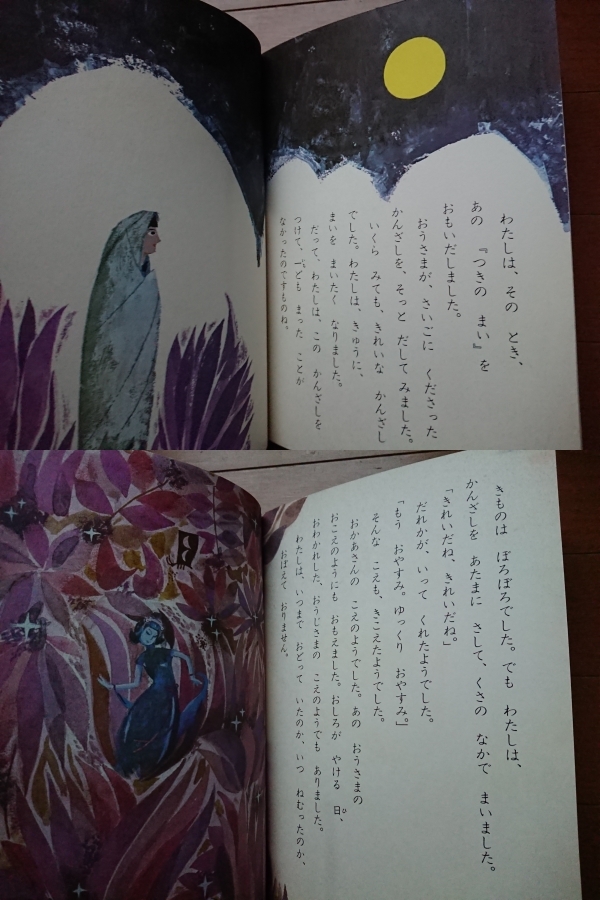 わたしは、その とき、
あの 『つきの まい』を
おもいだしました。
おうさまが、さいごに くださった
かんざしを、そっと だして みました。
いくら みても、きれいな かんざし
でした。わたしは、きゅうに、
まいを まいたく なりました。
だって、わたしは、この かんざしを
つけて、一ども まった ことが
なかったのですものね。
きものは ぼろぼろでした。でも わたしは、
かんざしを あたまに さして、くさの なかで まいました。
「きれいだね、きれいだね。」
だれかが、いって くれたようでした。
「もう おやすみ。ゆっくり おやすみ。」
そんな こえも、きこえたようでした。
おかあさんの こえのようでした。あの おうさまの
おこえのようにも おもえました。おしろが やける 日、
おわかれした、おうじさまの こえのようでも ありました。
わたしは、いつまで おどって いたのか、いつ ねむったのか、
おぼえて おりません。